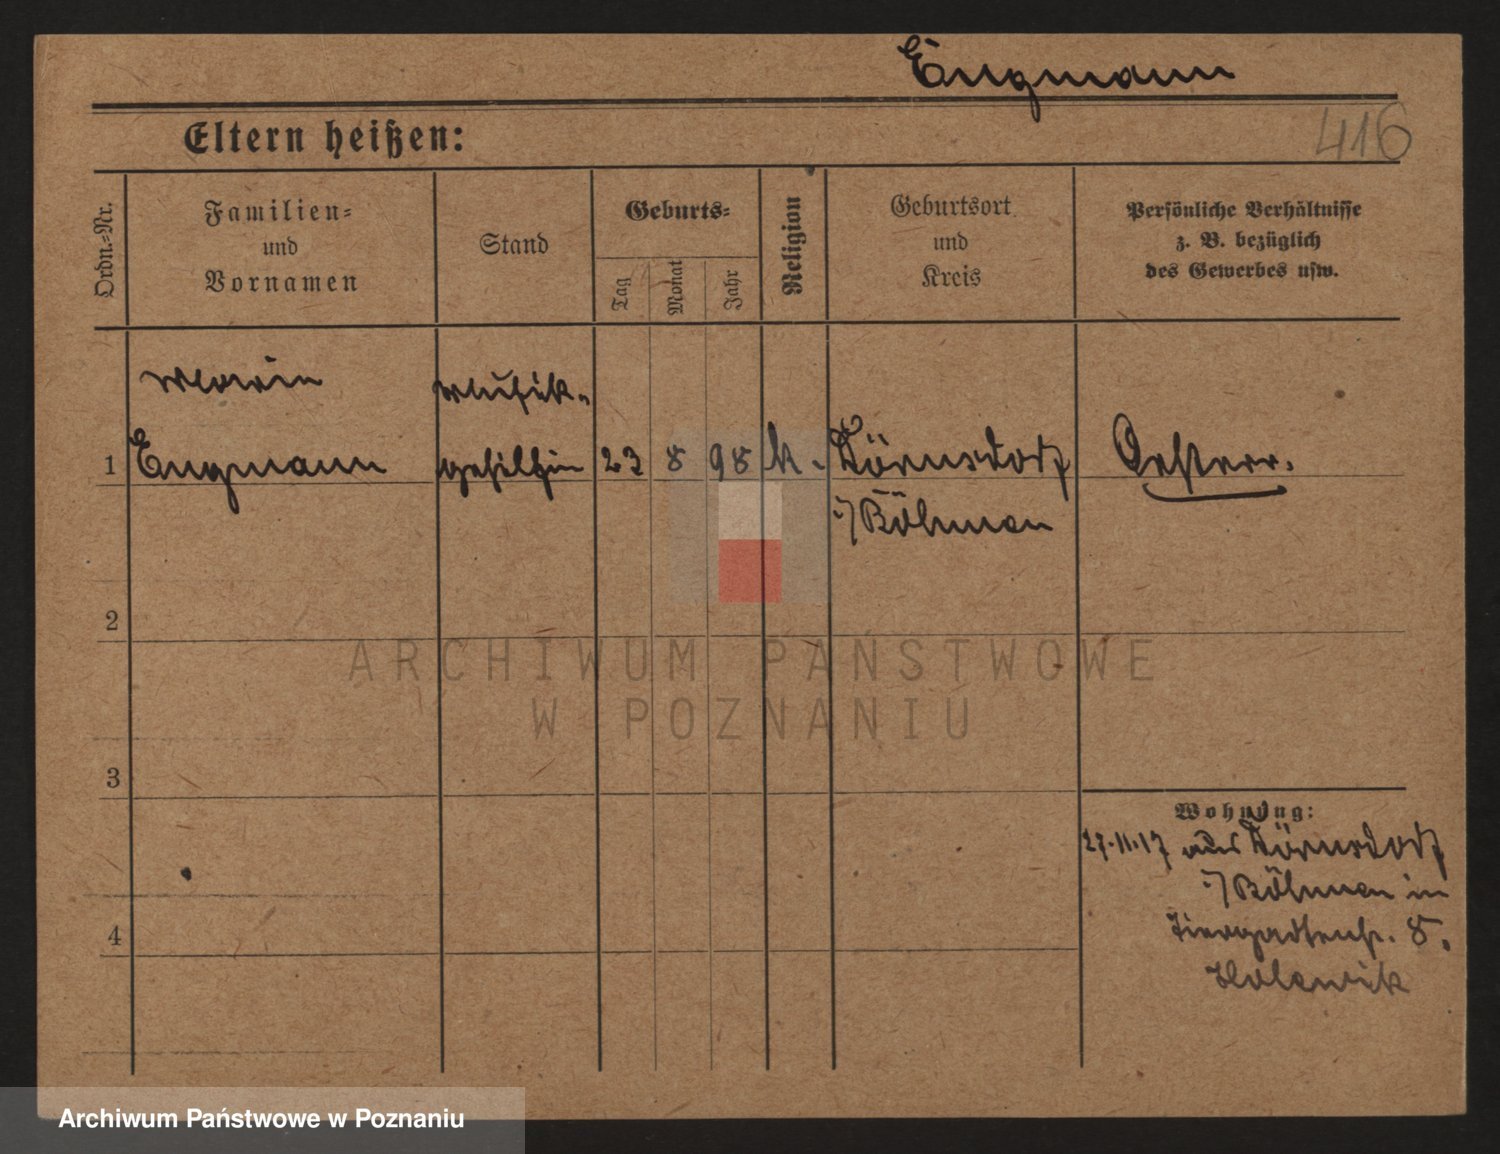 Engmann
416
Eltern heißen:
Ordn.-Nr.
Familien-
und
Vornamen
Stand
Geburts-
Tag
Monat
Jahr
Religion
Geburtsort
und
Kreis
Persönliche Verhältnisse
z. B. bezüglich
des Gewerbes usw.
Maria Musik-
1 Engmann gehilfin 23 8 98 k. Dörnsdorf Oesterr.
i/Böhmen
2
ARCHIWUM PAŃSTWOWE
W POZNANIU
3
Wohnung:
27.11.17 aus Dörnsdorf
i/Böhmen in
4
Tiergartenstr. 8.
Archiwum Państwowe w Poznaniu